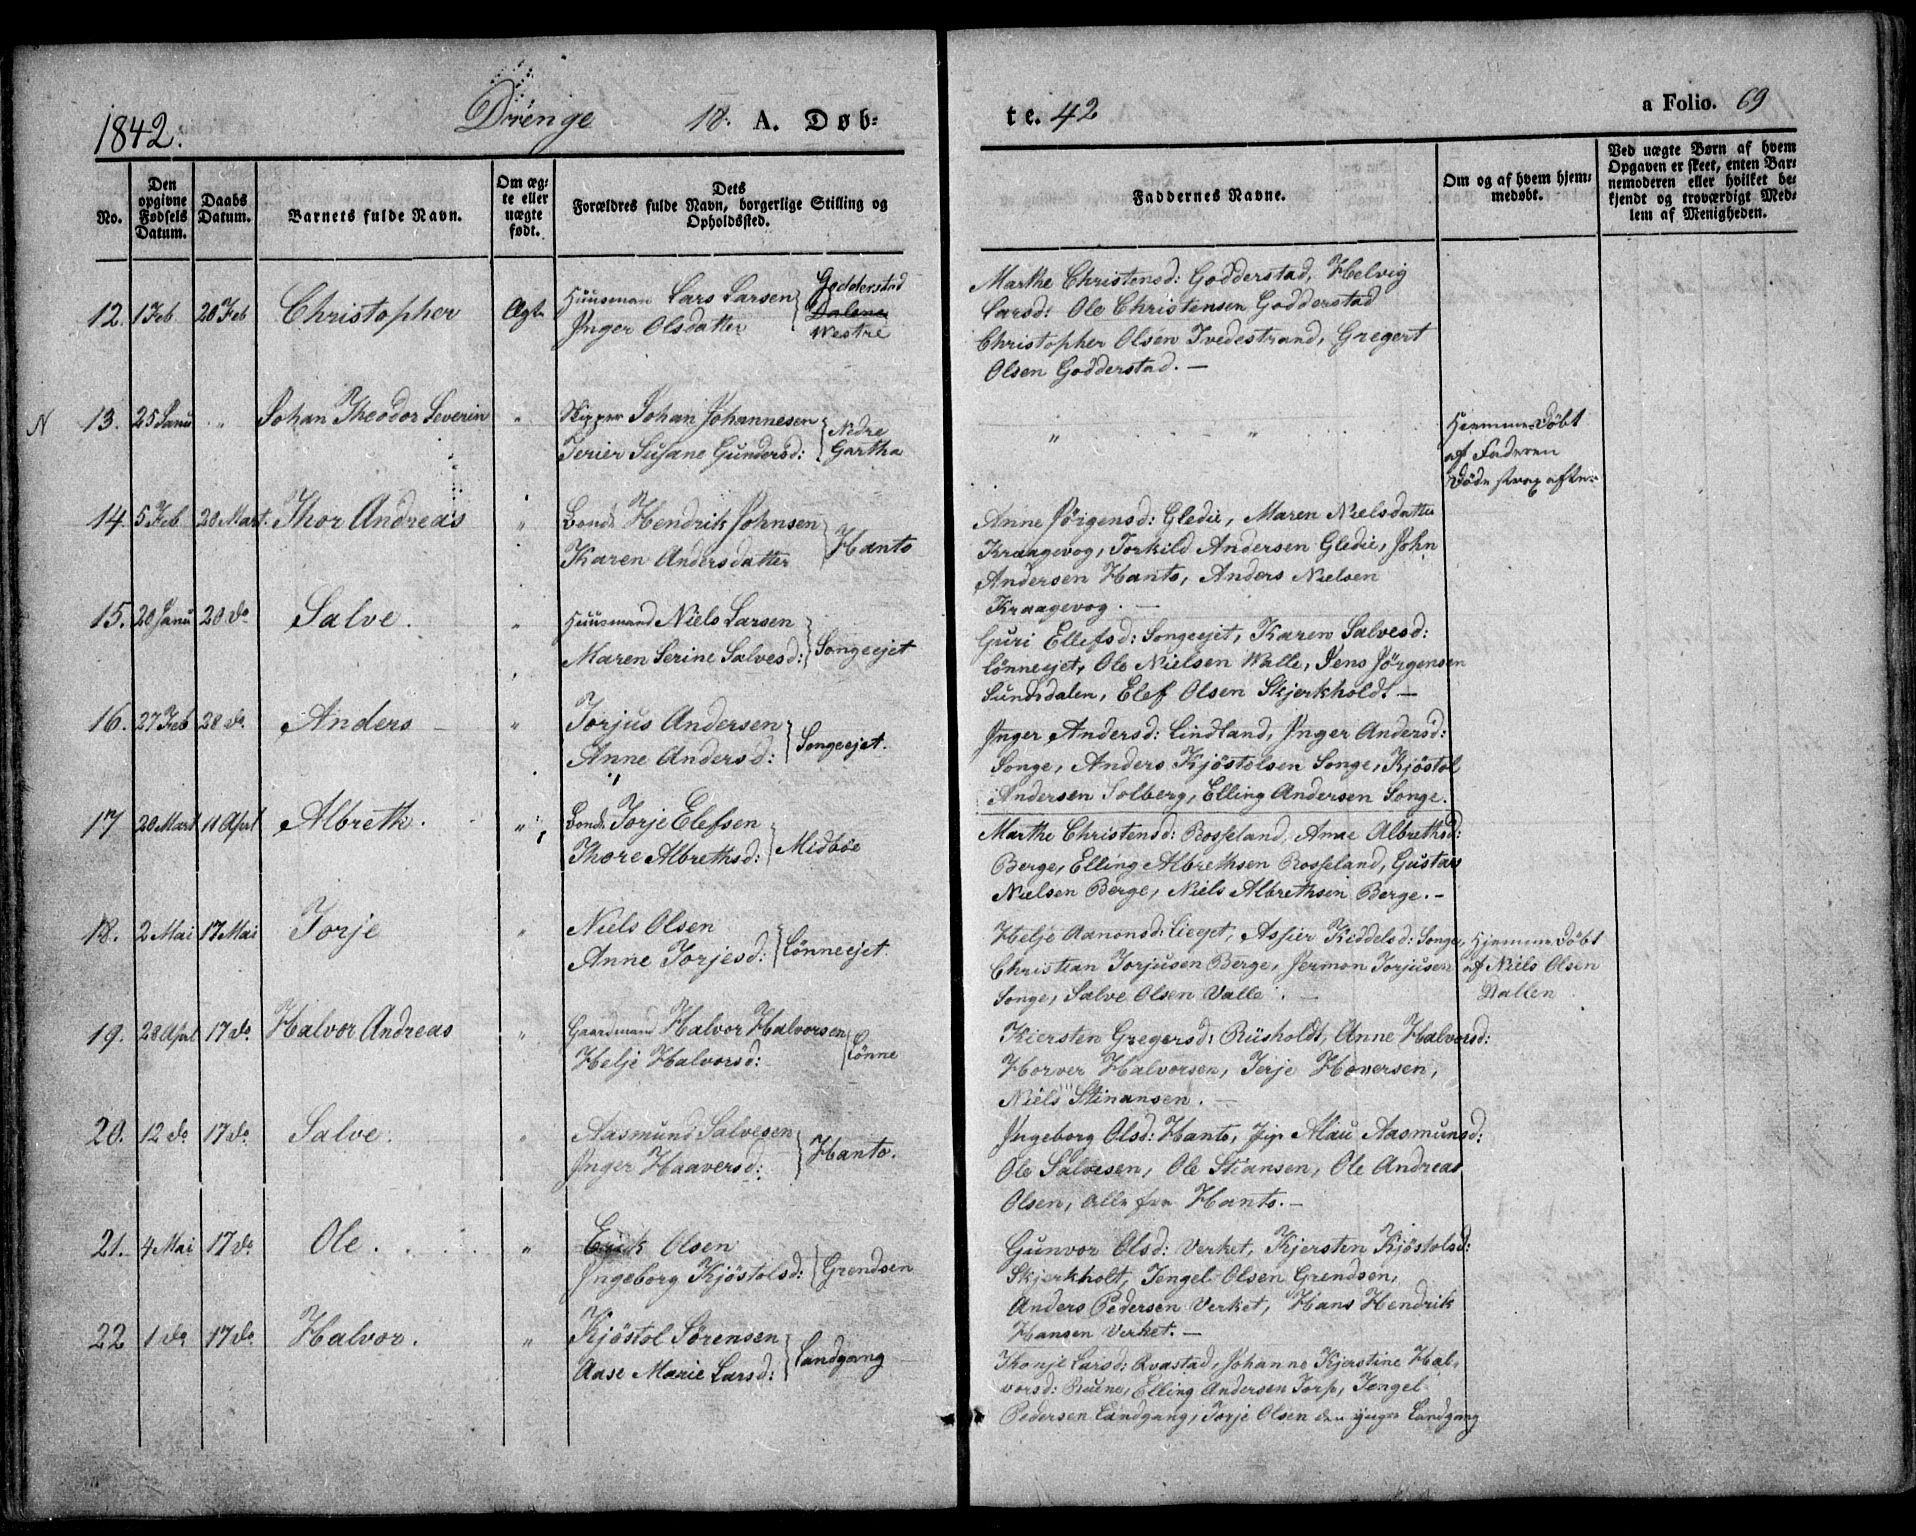 1842.
Drenge 18. A. Døb-
te. 42
a Folio. 69
No.
Den opgivne Fødsels Datum.
Daabs Datum.
Barnets fulde Navn.
Om ægte eller uægte født.
Dets Forældres fulde Navn, borgerlige Stilling og Opholdssted.
Faddernes Navne.
Om og af hvem hjemmedøbt.
Ved uægte Børn af hvem Opgaven er skeet, enten Barnemoderen eller hvilket bekjendt og troværdigt Medlem af Menigheden.
12. 1 Feb 20 Feb Christopher Ægte Huusman Lars Larsen Godderstad
Inger Olsdatter Dalene Westre
Marthe Christensd: Godderstad, Helvig
Larsd: Ole Christensen Godderstad
Christopher Olsen Tvedestrand, Gregert
Olsen Godderstad. —
N 13. 25 Janu „ Johan Theodor Severin „ Skipper Johan Johannesen Nedre
Susane Gundersd: Gartha
„ „
Hjemme Døbt
af Faderen
Døde strax efter
14. 5 Feb 20 Mart. Thor Andreas „ Bonde Hendrik Johnsen Hanto
Karen Andersdatter
Anne Jörgensd: Gledie, Maren Nielsdatter
Kraagevog, Torkild Andersen Gledie, John
Andersen Hanto, Anders Nielsen
Kraagevog. —
15. 20 Janu 20 do Salve. „ Huusmand Niels Larsen
Maren Serine Salvesd: Songeejet
Guri Ellefsd: Songeejet, Karen Salvesd:
Lønneejet, Ole Nielsen Walle, Jens Jörgensen
Sundsdalen, Elef Olsen Skjerkholdt —
16. 27 Feb 28 do Anders — „ Torjus Andersen
Anne Andersd: Songeejet.
Inger Andersd: Lindland, Inger Andersd:
Songe, Anders Kjöstolsen Songe, Kjöstol
Andersen Solberg, Elling Andersen Songe.
17 20 Mart 11 April Albreth. „ Bonde Torje Elefsen
Thore Albrethsd: Midböe
Marthe Christensd: Rosseland, Anne Albrethsd:
Berge, Elling Albrethsen Rosseland, Gustav
Nielsen Berge, Niels Albrethsen Berge. —
18. 2 Mai 17 Mai Torje „ Niels Olsen
Anne Torjesd: Lønneejet.
Helje Aanonsd: Lieejet, Kiddelsd: Songe,
Christian Torjusen Berge, Jermon Torjusen
Songe, Salve Olsen Valle. —
Hjemme Døbt
af Niels Olsen
Dallen
19. 28 April 17 do Halvor Andreas „ Gaardmand Halvor Halvorsen
Helje Halvorsd: Lønne
Kiersten Gregersd: Riisholdt, Anne Halvorsd:
Horver Halvorsen, Terje Hoversen,
Niels Stinansen. —
20. 12 do 17 do Salve. „ Aasmund Salvesen
Inger Haaversd: Hanto.
Ingeborg Olsd: Hanto, Aasmunsd:
Ole Salvesen, Ole Stiansen, Ole Andreas
Olsen, alle fra Hanto. —
21. 4 Mai 17 do Ole. „ Erik Olsen
Ingeborg Kjöstolsd: Grendsen
Gunvor Olsd: Verket, Kjersten Kjöstolsd:
Skjerkholt, Tengel Olsen Grendsen,
Anders Pedersen Verket, Hans Hendrik
Hansen Verket. —
22 1 do 17 do Halvor. „ Kjöstol Sørensen
Aase Marie Larsd: Landgang
Thonje Larsd: Qvastad, Johanne Kjerstine Hal-
vorsd: Elling Andersen Torp, Tengel
Pedersen Landgang, Torje Olsen den yngre Landgang